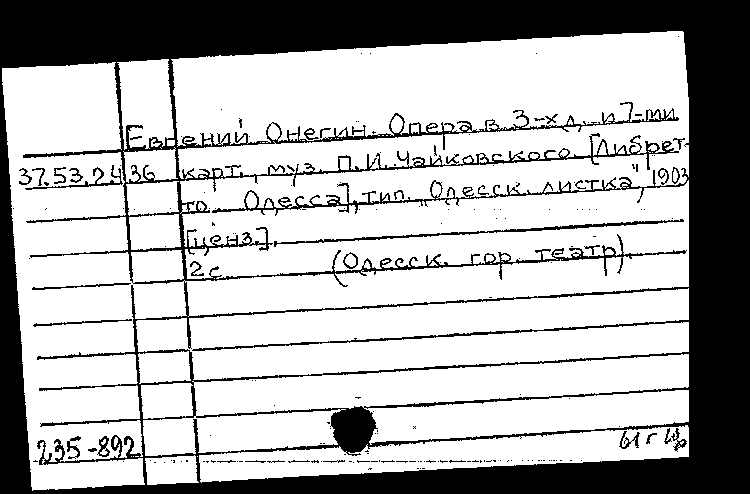 Евгений Онегин. Опера в 3-х д. и 7-ми
37.53.24.36 карт., муз. П.И. Чайковского. [Либрет-
то. Одесса], тип. „Одесск. листка", 1903
[ценз.].
2 с. (Одесск. гор. театр).
235-892
61 г